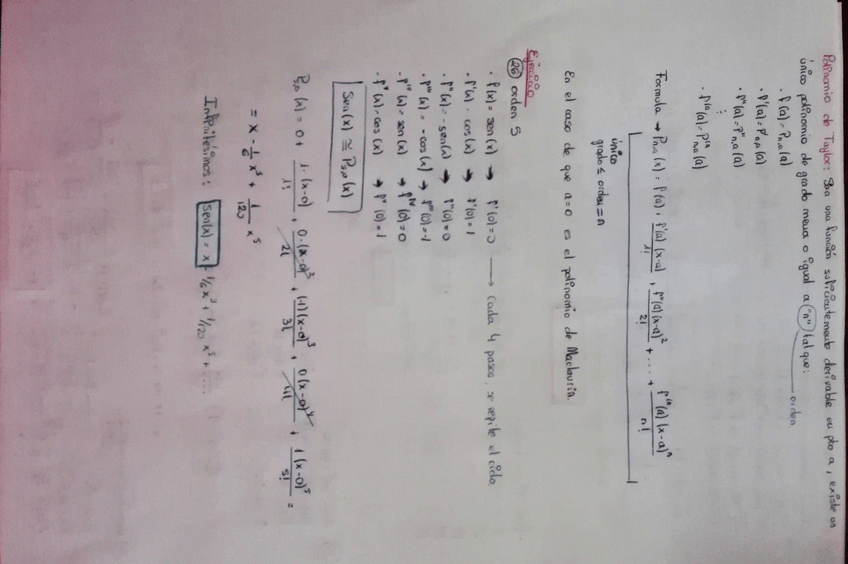 Polinomio de Taylor: Sea una función suficientemente derivable en pto a, existe un
único polinomio de grado menor o igual a "n" tal que:
orden
· f(a) = Pn,a(a)
· f'(a) = P'n,a(a)
· f''(a) = P''n,a(a)
⋮
· fⁿ(a) = Pⁿn,a(a)
Formula → Pn,a(x) = f(a) + f'(a)(x-a)/1! + f''(a)(x-a)²/2! + ... + fⁿ(a)(x-a)ⁿ/n!
único
grado ≤ orden = n
En el caso de que a=0 es el polinomio de Maclaurin.
Ejercicio
26 orden 5
· f(x) = sen(x) → f(0) = 0 → cada 4 pasos, se repite el ciclo
· f'(x) = cos(x) → f'(0) = 1
· f''(x) = -sen(x) → f''(0) = 0
· f'''(x) = -cos(x) → f'''(0) = -1
· fᴵⱽ(x) = sen(x) → fᴵⱽ(0) = 0
· fⱽ(x) = cos(x) → fⱽ(0) = 1
Sen(x) ≅ P5,0(x)
P5,0(x) = 0 + 1·(x-0)/1! + 0·(x-0)²/2! + (-1)(x-0)³/3! + 0(x-0)⁴/4! + 1(x-0)⁵/5! =
= x - 1/6 x³ + 1/120 x⁵
Infinitésimos: sen(x) = x - 1/6 x³ + 1/120 x⁵ + ....